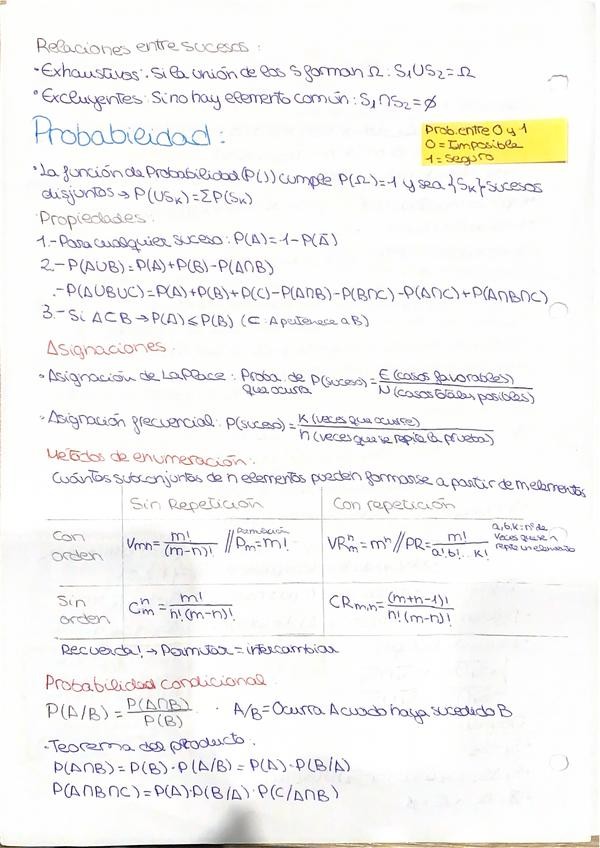 Relaciones entre sucesos:
·Exhaustivos: Si la unión de los S forman Ω: S₁∪S₂=Ω
·Excluyentes: Si no hay elemento común: S₁∩S₂=ø
Probabilidad:
Prob. entre 0 y 1
0 = Imposible
1 = Seguro
·La función de Probabilidad (P()) cumple P(Ω)=1 y sea {Sₖ} sucesos
disjuntos → P(∪Sₖ)=ΣP(Sₖ)
Propiedades:
1.- Para cualquier suceso: P(A)=1-P(Ā)
2.- P(A∪B)=P(A)+P(B)-P(A∩B)
.- P(A∪B∪C)=P(A)+P(B)+P(C)-P(A∩B)-P(B∩C)-P(A∩C)+P(A∩B∩C)
3.- Si A⊂B → P(A)≤P(B) (⊂: A pertenece a B)
Asignaciones.
·Asignación de LaPlace: Proba de que ocurra P(suceso)= E (casos favorables) / N (casos totales posibles)
·Asignación frecuencial: P(suceso)= K (veces que ocurre) / n (veces que se repite la prueba)
Métodos de enumeración:
Cuántos subconjuntos de n elementos pueden formarse a partir de m elementos
Sin Repetición
Con repetición
Con orden
Vmn= m! / (m-n)! // Permutación Pm=m!
VRₘⁿ=mⁿ // PR= m! / a!b!...k!
a,b,k=nº de veces que se repite un elemento
Sin orden
Cₘⁿ= m! / n!(m-n)!
CRm,n= (m+n-1)! / n!(m-n)!
Recuerda! → Permutar = intercambiar
Probabilidad condicional.
P(A/B)= P(A∩B) / P(B) · A/B=Ocurra A cuando haya sucedido B
·Teorema del producto.
P(A∩B)=P(B)·P(A/B)=P(A)·P(B/A)
P(A∩B∩C)=P(A)·P(B/A)·P(C/A∩B)